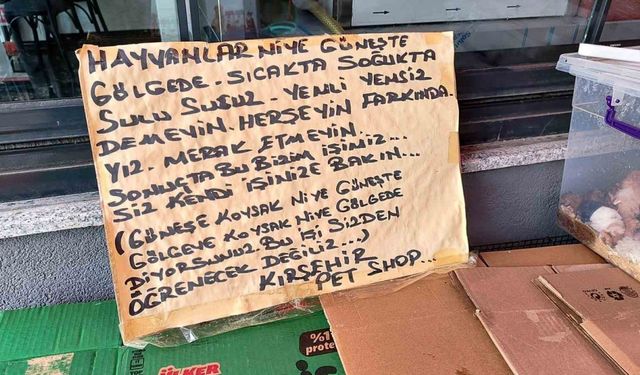 HAYVANLAR NİYE GÜNEŞTE
GÖLGEDE-SICAKTA SOĞUKTA
SULU SUSUZ-YEMLİ YEMSİZ
DEMEYİN. HERŞEYİN FARKINDA-
YIZ. MERAK ETMEYİN.
SONUÇTA BU BİZİM İŞİMİZ...
SİZ KENDİ İŞİNİZE BAKIN...
(GÜNEŞE KOYSAK NİYE GÜNEŞTE
GÖLGEYE KOYSAK NİYE GÖLGEDE
DİYORSUNUZ BU İŞİ SİZDEN
ÖĞRENECEK DEĞİLİZ...)
KIRŞEHİR
PET SHOP...
ÜLKER